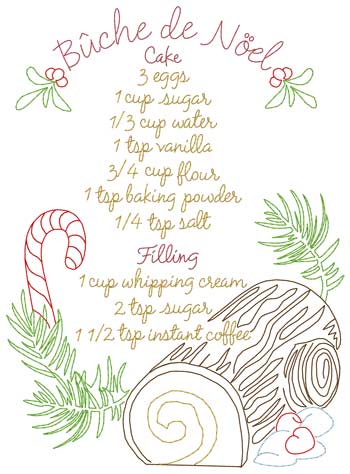 Bûche de Nöel
Cake
3 eggs
1 cup sugar
1/3 cup water
1 tsp vanilla
3/4 cup flour
1 tsp baking powder
1/4 tsp salt
Filling
1 cup whipping cream
2 tsp sugar
1 1/2 tsp instant coffee